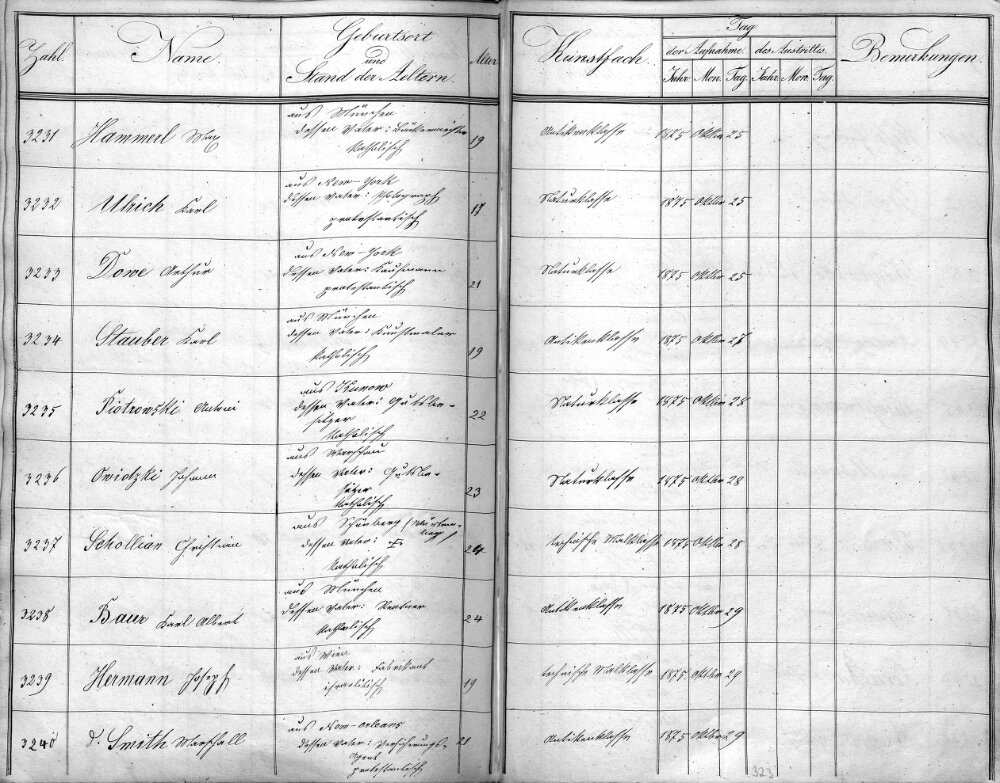 Zahl. Name. Geburtsort und Stand der Aeltern. Alter Kunstfach. Tag der Aufnahme. des Austrittes. Bemerkungen.
Jahr. Mon. Tag. Jahr. Mon. Tag.
3231 Hammerl Max aus München 19 Antikenklasse 1875 Oktber 25
dessen Vater: Bäckermeister
katholisch
3232 Ulrich Karl aus New-York 17 Naturklasse 1875 Oktber 25
dessen Vater: Photograph
protestantisch
3233 Dowe Arthur aus New-York 21 Naturklasse 1875 Oktber 25
dessen Vater: Kaufmann
protestantisch
3234 Stauber Karl aus München 19 Antikenklasse 1875 Oktber 27
dessen Vater: Kunstmaler
katholisch
3235 Piotrowski Antoni aus 22 Naturklasse 1875 Oktber 28
dessen Vater: Gutsbe-
sitzer
katholisch
3236 Johann aus Warschau 23 Naturklasse 1875 Oktber 28
dessen Vater: Gutsbe-
sitzer
katholisch
3237 Schollian Christian aus (Würtem- 24 technische Malklasse 1875 Oktber 28
berg)
dessen Vater: †
katholisch
3238 Baur Karl Albert aus München 24 Antikenklasse 1875 Oktber 29
dessen Vater: Rentner
katholisch
3239 Hermann Joseph aus Wien 19 technische Malklasse 1875 Oktber 29
dessen Vater: Fabrikant
israelitisch
3240 Smith Marshall aus New-Orleans 21 Antikenklasse 1875 Oktber 29
dessen Vater: Versicherungs-
Agent
protestantisch
323